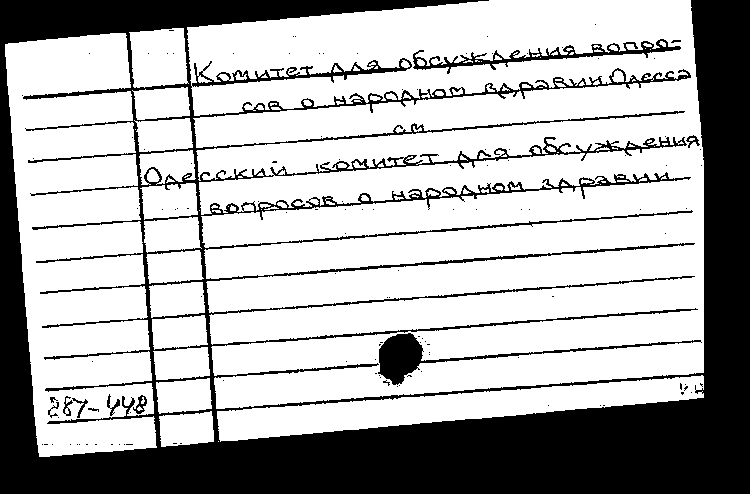 Комитет для обсуждения вопро-
сов о народном здравии Одесса
см
Одесский комитет для обсуждения
вопросов о народном здравии
287-448